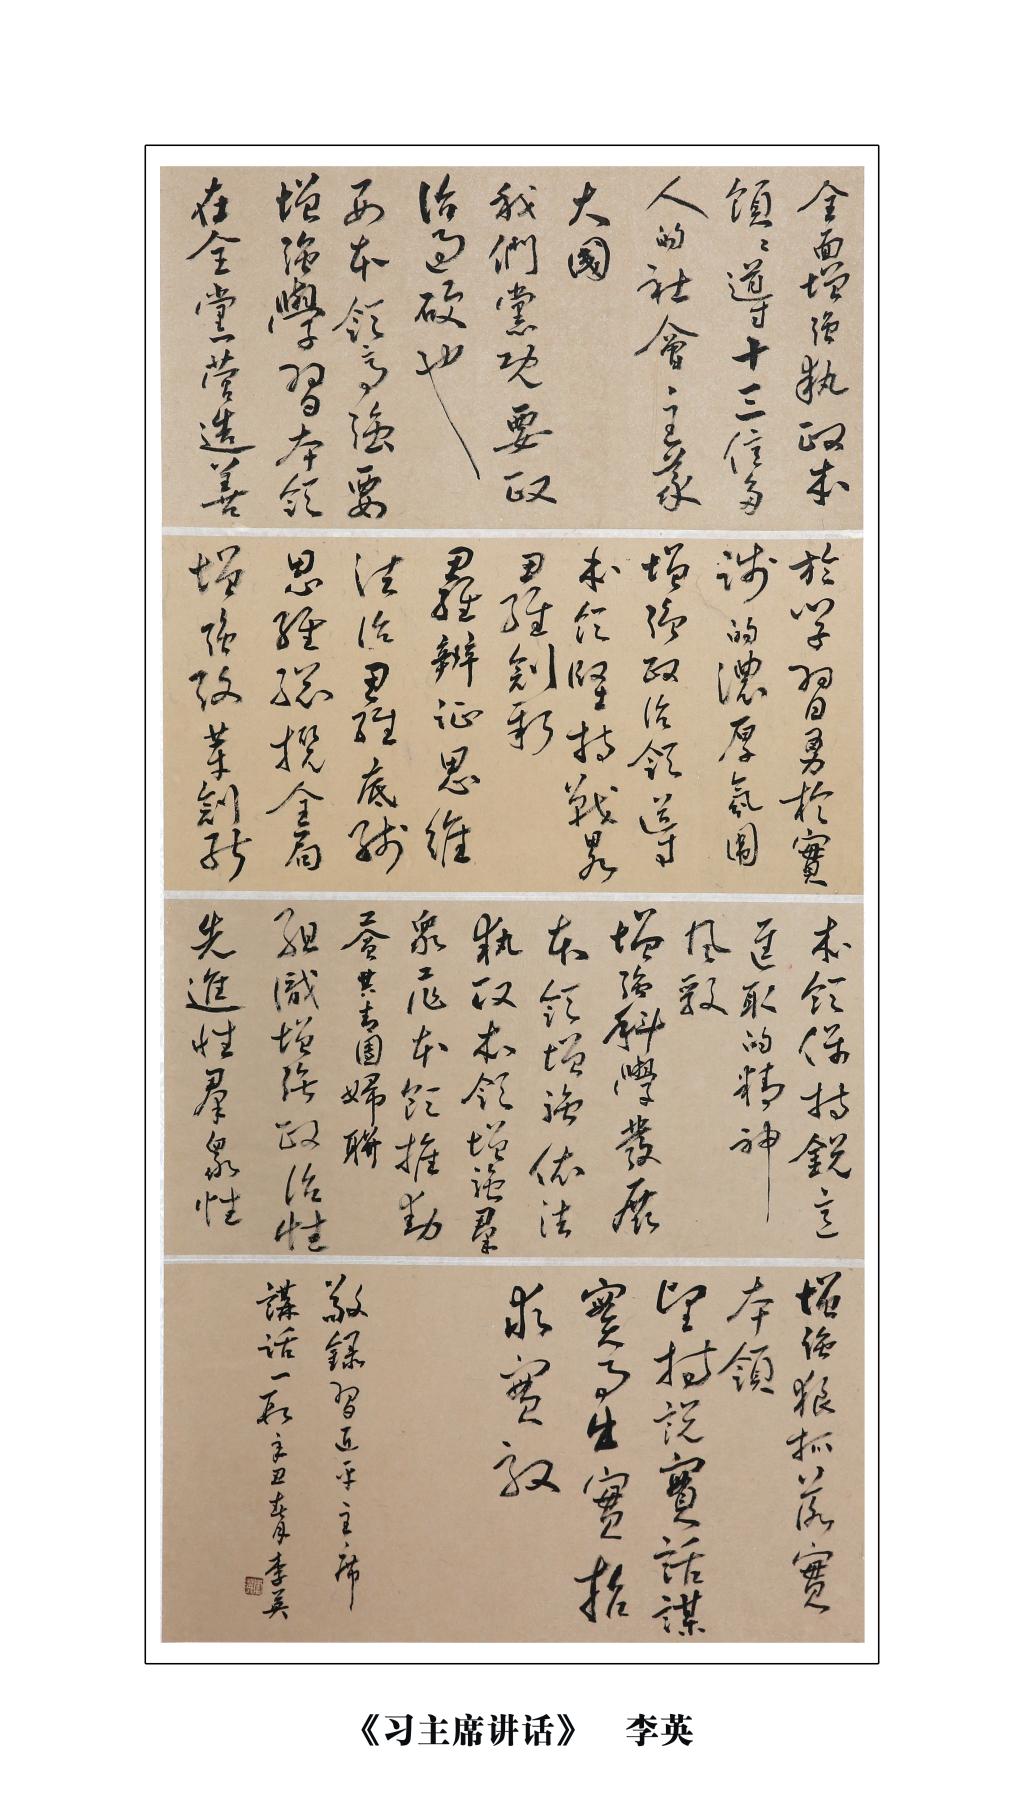 全面增强執政本
領領導十三億多
人的社會主義
大國
我們黨既要政
治過硬也
要本領高強要
增強學習本領
在全黨營造善
於学習勇於實
踐的濃厚氣圍
增強政治領導
本領堅持戰畧
思維創新
思維辦证思維
法治思維底线
思維總攬全局
增強改革創新
本領保持銳意
進取的精神
風貌
增強科學發展
本領增強依法
執政本領增強羣
衆工作本領推動
工會共青團婦聯
組織增強政治性
先進性羣衆性
增強狠抓落實
本領
堅持說實話謀
實事出實招
求實效
敬録習近平主席
講話一段辛丑春月李英
《习主席讲话》 李英